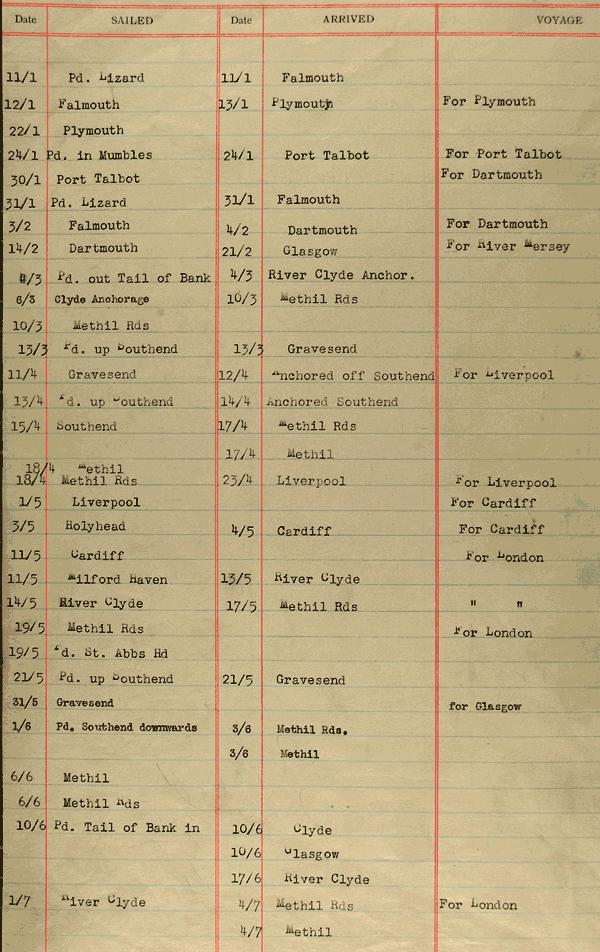 Date SAILED Date ARRIVED VOYAGE
11/1 Pd. Lizard 11/1 Falmouth
12/1 Falmouth 13/1 Plymouth For Plymouth
22/1 Plymouth
24/1 Pd. in Mumbles 24/1 Port Talbot For Port Talbot
30/1 Port Talbot For Dartmouth
31/1 Pd. Lizard 31/1 Falmouth
3/2 Falmouth 4/2 Dartmouth For Dartmouth
14/2 Dartmouth 21/2 Glasgow For River Mersey
4/3 Pd. out Tail of Bank 4/3 River Clyde Anchor.
6/3 Clyde Anchorage 10/3 Methil Rds
10/3 Methil Rds
13/3 Pd. up Southend 13/3 Gravesend
11/4 Gravesend 12/4 Anchored off Southend For Liverpool
13/4 Pd. up Southend 14/4 Anchored Southend
15/4 Southend 17/4 Methil Rds
17/4 Methil
18/4 Methil
18/4 Methil Rds 23/4 Liverpool For Liverpool
1/5 Liverpool For Cardiff
3/5 Holyhead 4/5 Cardiff For Cardiff
11/5 Cardiff For London
11/5 Milford Haven 13/5 River Clyde
14/5 River Clyde 17/5 Methil Rds " "
19/5 Methil Rds For London
19/5 Pd. St. Abbs Hd
21/5 Pd. up Southend 21/5 Gravesend
31/5 Gravesend for Glasgow
1/6 Pd. Southend downwards 3/6 Methil Rds.
3/6 Methil
6/6 Methil
6/6 Methil Rds
10/6 Pd. Tail of Bank in 10/6 Clyde
10/6 Glasgow
17/6 River Clyde
1/7 River Clyde 4/7 Methil Rds For London
4/7 Methil